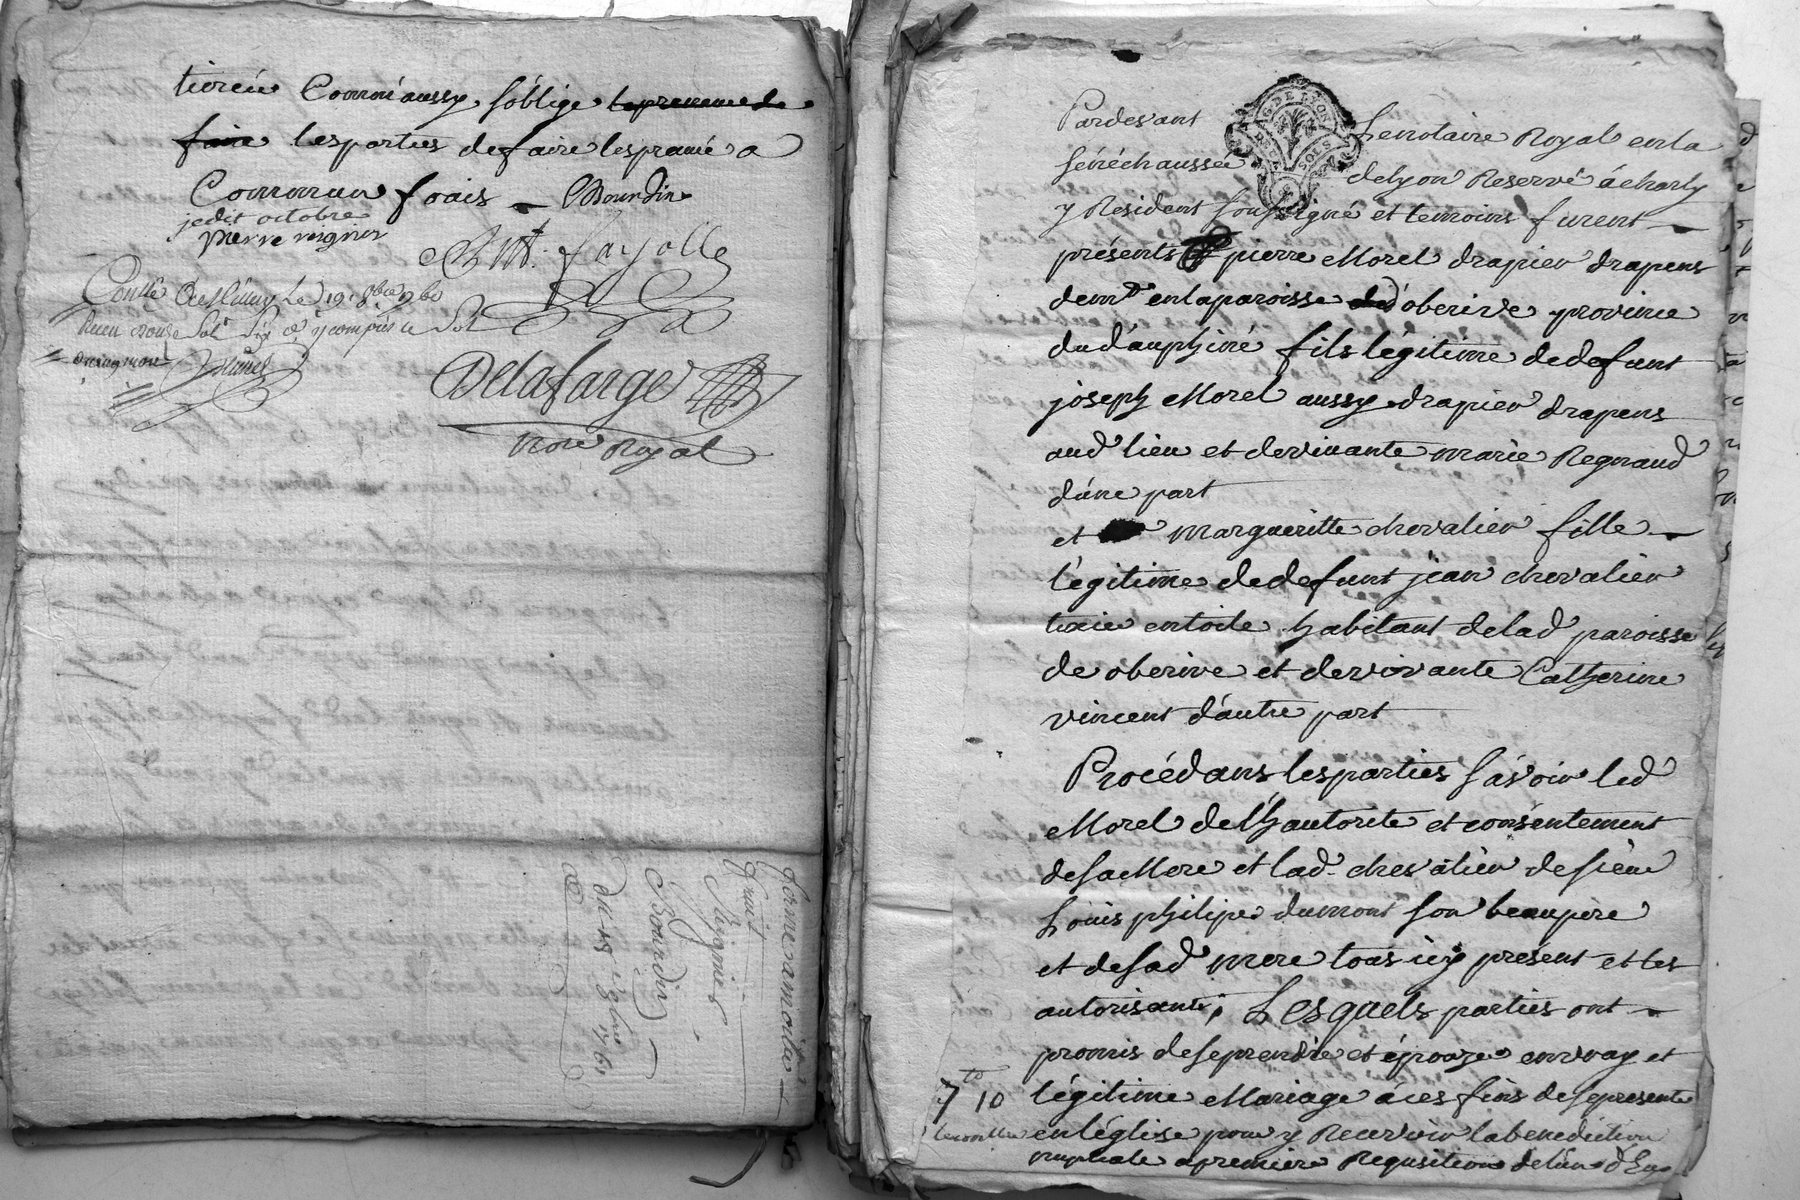 Comme aussy s'oblige
lesparties defaire
Commun frais Bourdin
jedit octobre
pierre
Ant. fayolle
Delafarge
Nore Royal
ferme a moitié
Bourdin
1761
GDE LYON
SOLS
Pardevant Lenotaire Royal enla
sénéchaussée delyon Reservé àcharly
y Résident soussigné et temoins furent
présents pierre Morel drapier drapens
demt enlaparoisse d'oberive province
dudauphiné fils légitime dedefunt
joseph Morel aussy drapier drapens
aud lieu et devivante marie Regnaud
d'une part
et margueritte chevalier fille
légitime dedefunt jean chevalier
tixie entoile habitant delad paroisse
de oberive et devivante Catherine
vincent d'autre part
Procédans lesparties sàvoir led
Morel del'hautorité et consentement
desa Mere et lad chevalier desieur
Louis philipe dumont son beaupere
et desad mere tous icy présent et les
autorisant, Lesquels parties ont
promis deseprendre et épouzer envray et
7 10 légitime Mariage àcesfins desepresente
enléglise pour y Recevoir labenediction
nuptiale apremiere Requsition delun